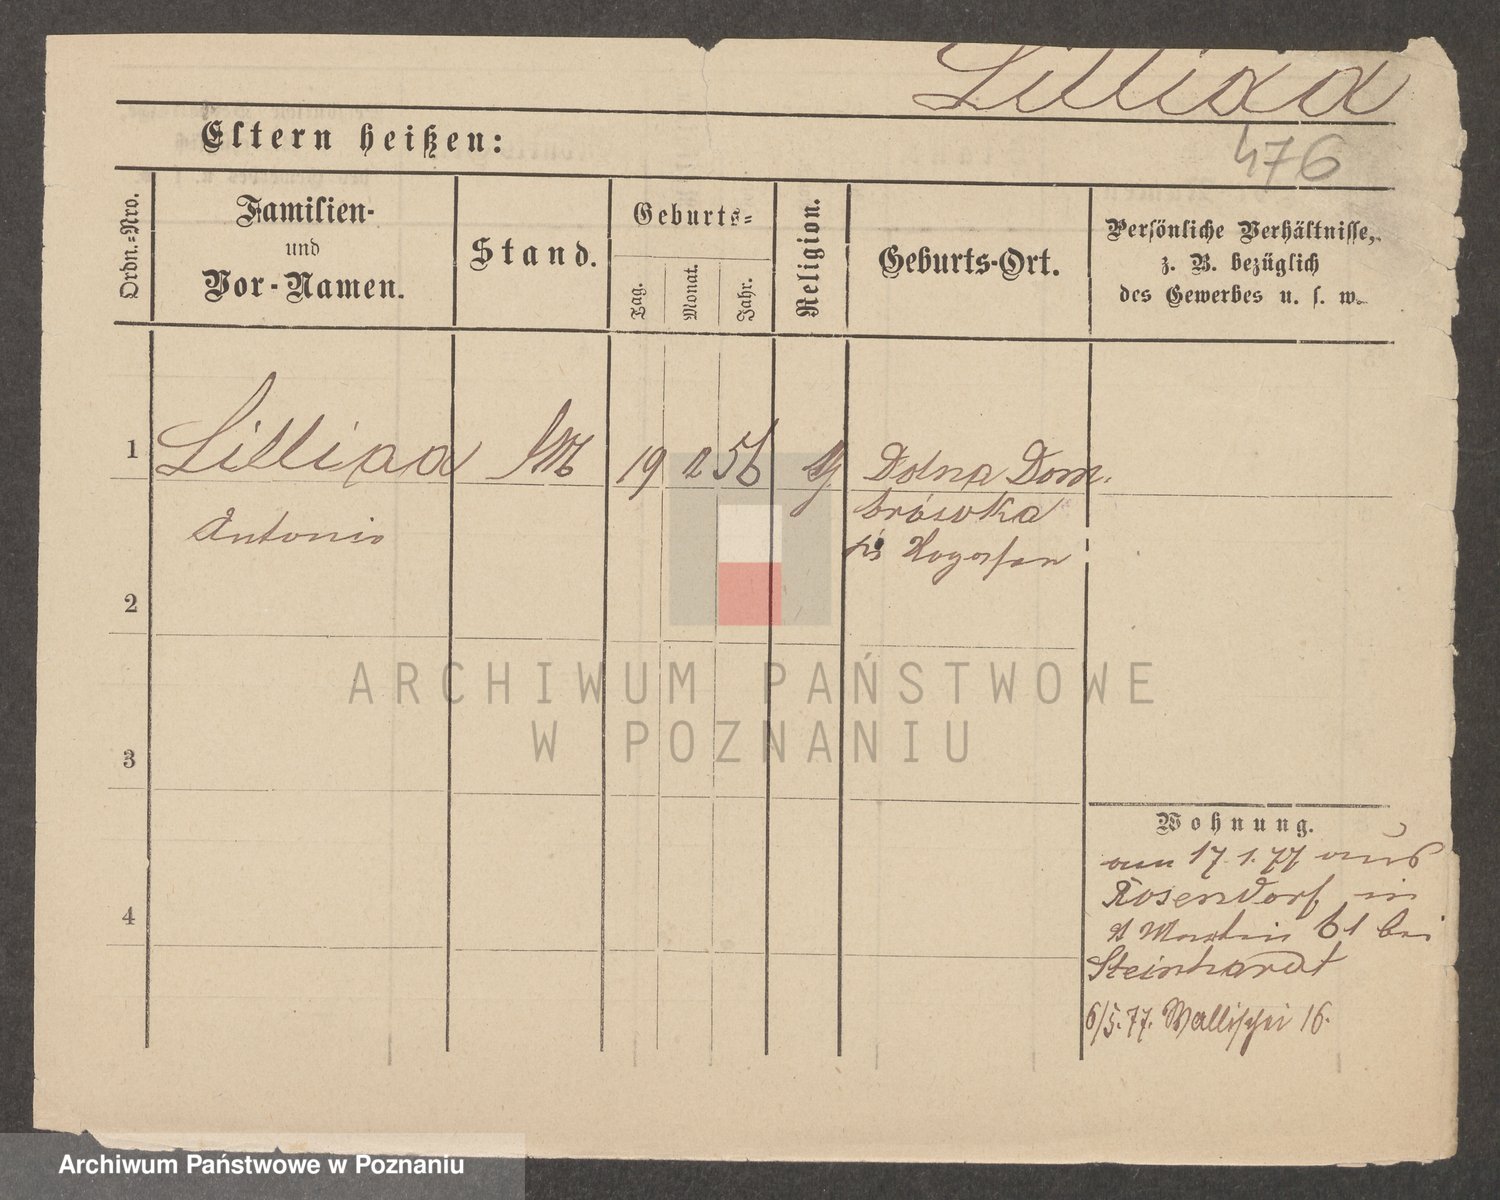 Lissiaa
476
Eltern heißen:
Ordn.-Nro.
Familien-
und
Vor-Namen.
Stand.
Geburts-
Tag.
Monat.
Jahr.
Religion.
Geburts-Ort.
Persönliche Verhältnisse,
z. B. bezüglich
des Gewerbes u. s. w.
1
19
56
Dolna Dom
browka
Antonie
2
3
4
ARCHIWUM PAŃSTWOWE
W POZNANIU
Wohnung.
am 17.1.77 aus
Rosendorf in
St Martin 61 bei
Steinhardt
6/5.77. Wallischei 16.
Archiwum Państwowe w Poznaniu